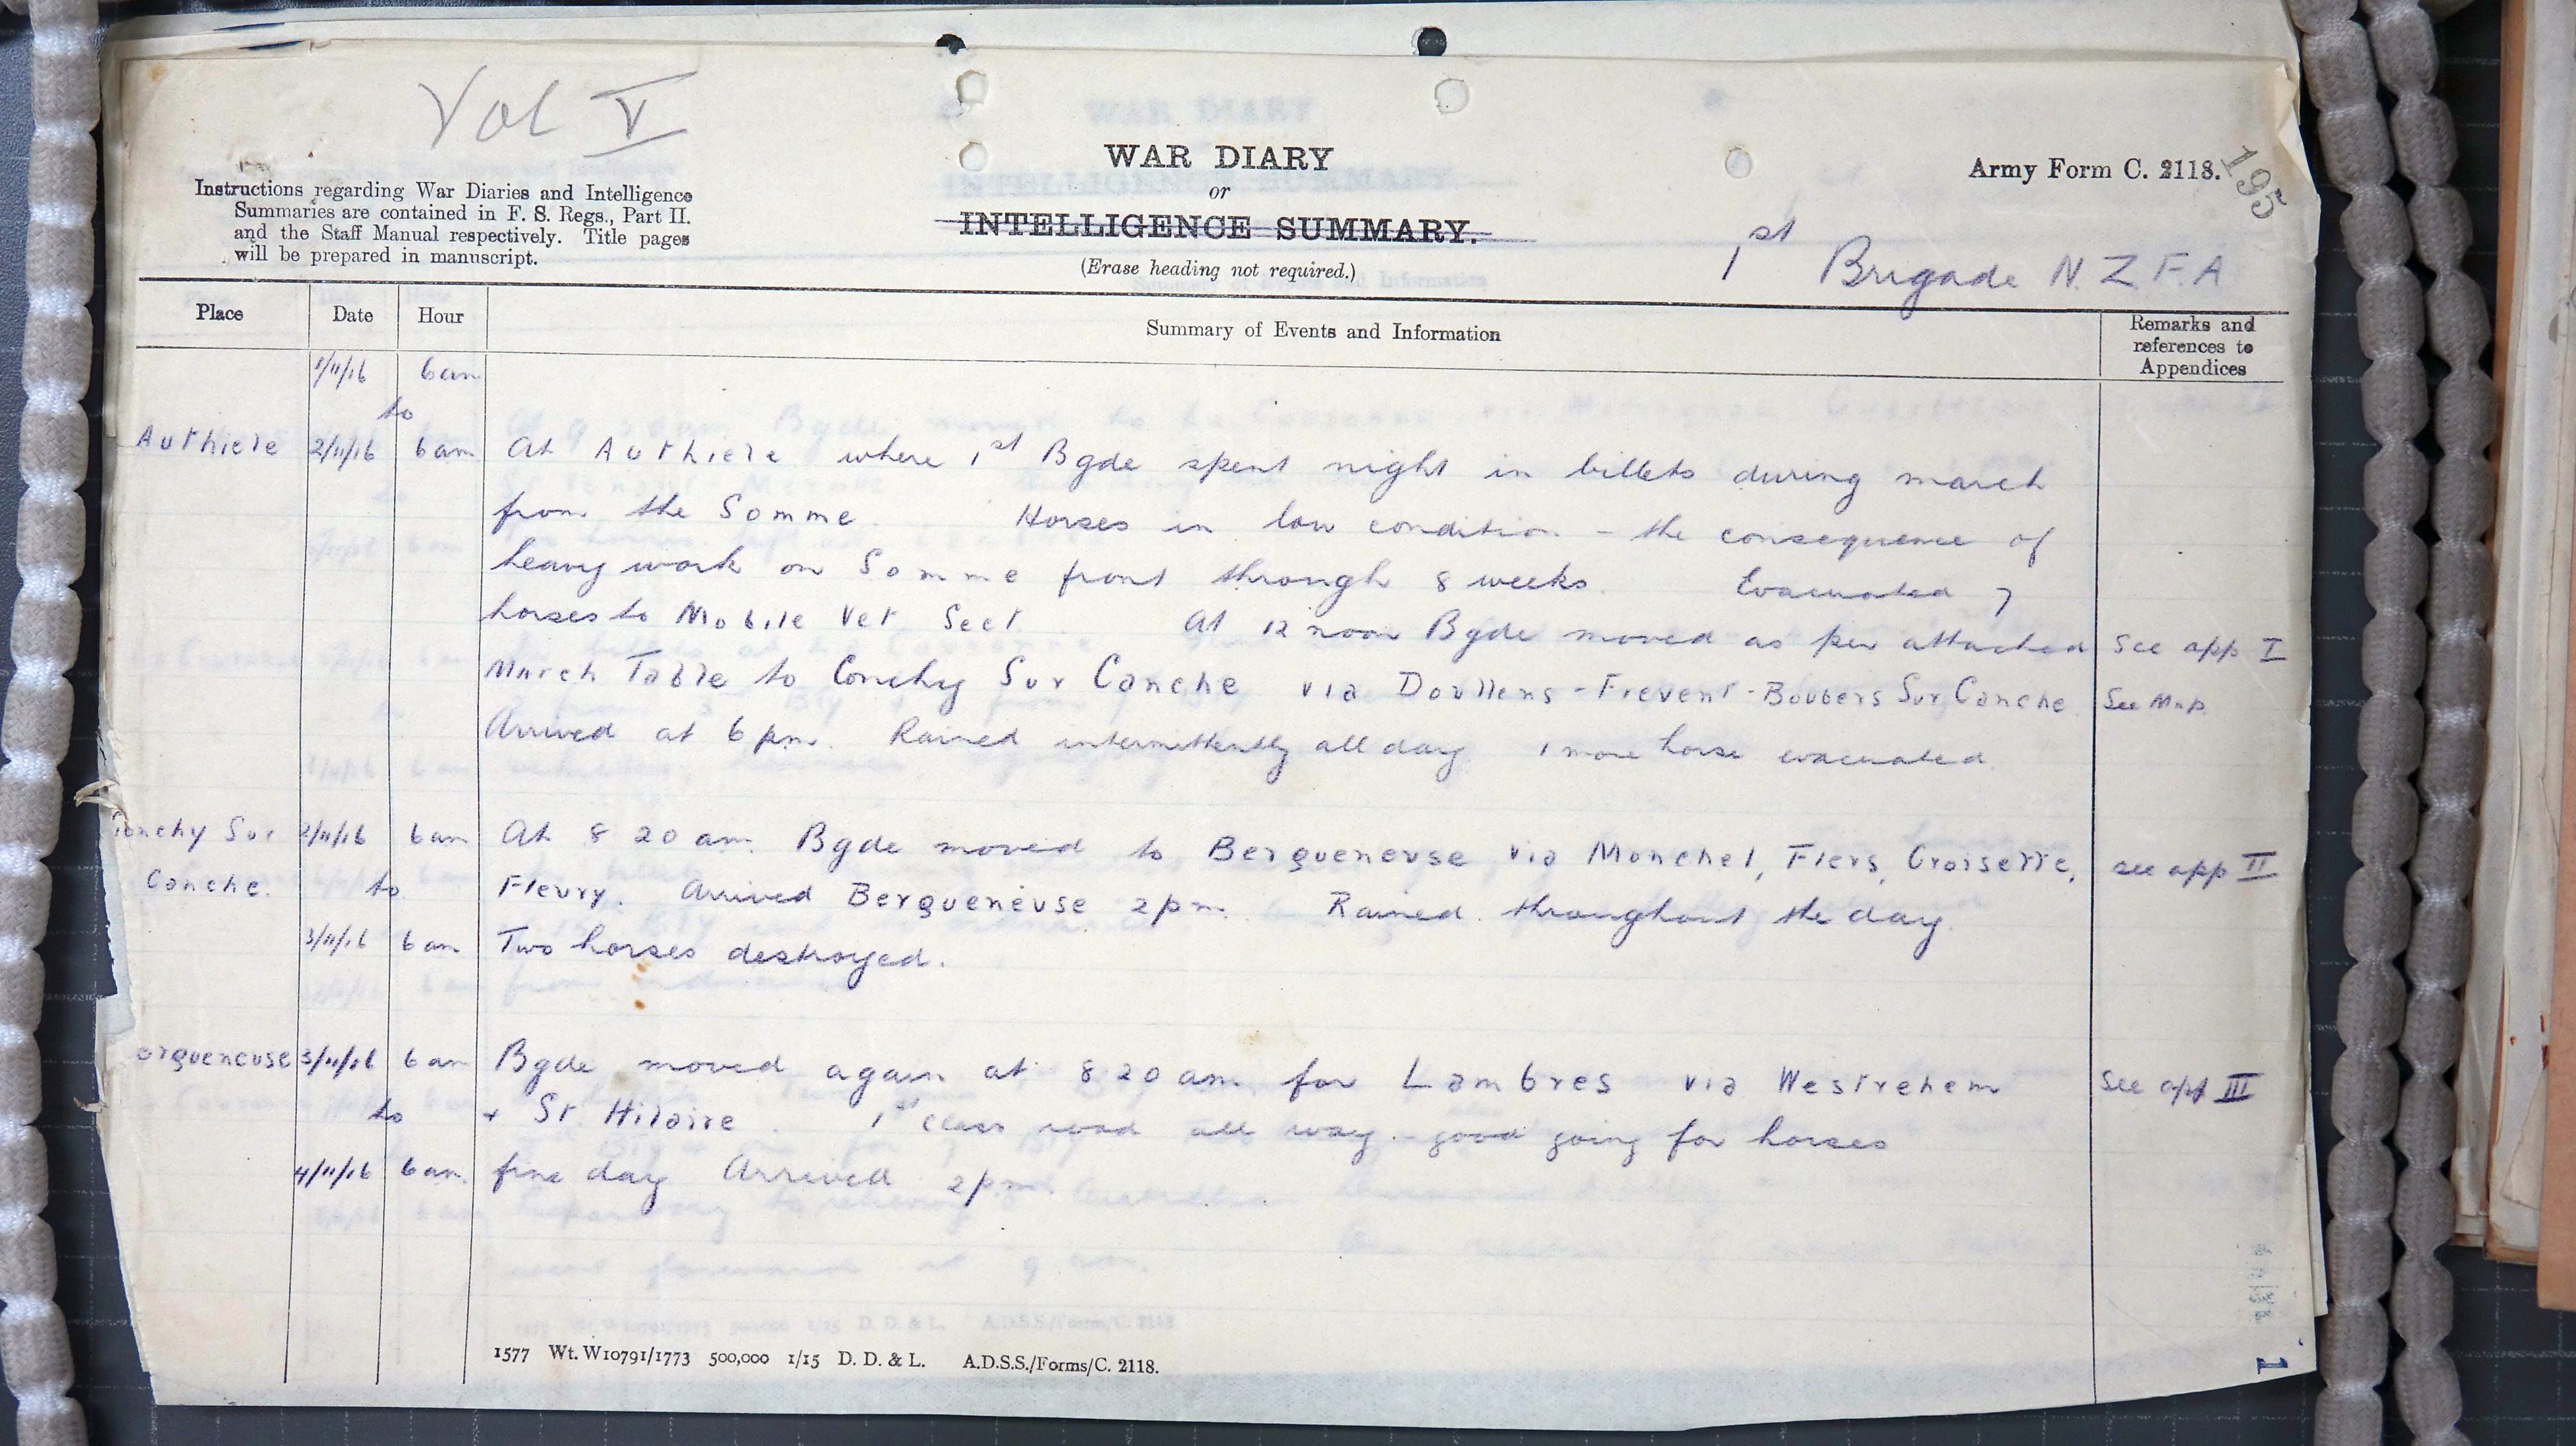 Vol V
195
WAR DIARY
or
INTELLIGENCE SUMMARY.
(Erase heading not required.)
Army Form C. 2118.
Instructions regarding War Diaries and Intelligence
Summaries are contained in F. S. Regs., Part II.
and the Staff Manual respectively. Title pages
will be prepared in manuscript.
1st Brigade N.Z.F.A
Place Date Hour Summary of Events and Information Remarks and references to Appendices
1/11/16 6am
to
Authiele 2/11/16 6am At Authiele where 1st Bgde spent night in billets during march
from the Somme Horses in low condition - the consequence of
heavy work on Somme front through 8 weeks. Evacuated 7
horses to Mobile Vet Sect At 12 noon Bgde moved as per attached See app I
March Table to Conchy Sur Canche via Doullens - Frevent - Boubers Sur Canche See Map.
Arrived at 6 pm. Rained intermittently all day 1 more horse evacuated.
onchy Sur 2/11/16 6am At 8 20 am. Bgde moved to Bergueneuse via Monchel, Flers, Croisette, see app II
Canche. to Fleury. Arrived Bergueneuse 2pm. Rained throughout the day.
3/11/16 6am Two horses destroyed.
ergueneuse 3/11/16 6am Bgde moved again at 8 20 am for Lambres via Westrehem See app III
to + St. Hilaire. 1st class road all way - good going for horses
4/11/16 6am. fine day Arrived 2pm.
1577 Wt. W10791/1773 500,000 1/15 D. D. & L. A.D.S.S./Forms/C. 2118.
1